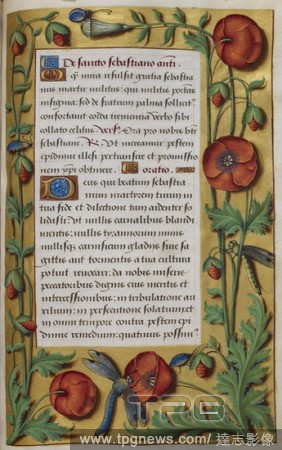 De sancto sebastiano anti.
Qm mira refulsit gratia sebastia
nus martir inclitus: qui militis portans
insignia: sed de fratrum palma sollicit?
confortauit corda trementia verbo sibi
collato celitus Vers? Ora pro nobis bte
sebastiane. R. Vt mereamur pestem
epidimie illesi pertransire et promissio
nem xpi obtinere. oratio.
Deus qui beatum sebastia
num martyrem tuum in
tua fide et dilectione tam ardenter so
lidasti: vt nullis carnalibus blandi
mentis: nullis tyrannorum minis
nullisq; carnificum gladiis siue sa
gittis aut tormentis a tua cultura
potuit reuocari: da nobis misere
peccatoribus dignis eius meritis et
intercessionibus: in tribulatione au
xilium: in persecutione solatium: et
in omni tempore contra pestem epi
dimie remedium: quatinus possim?
TPG
www.tpgnews.com/達志影像